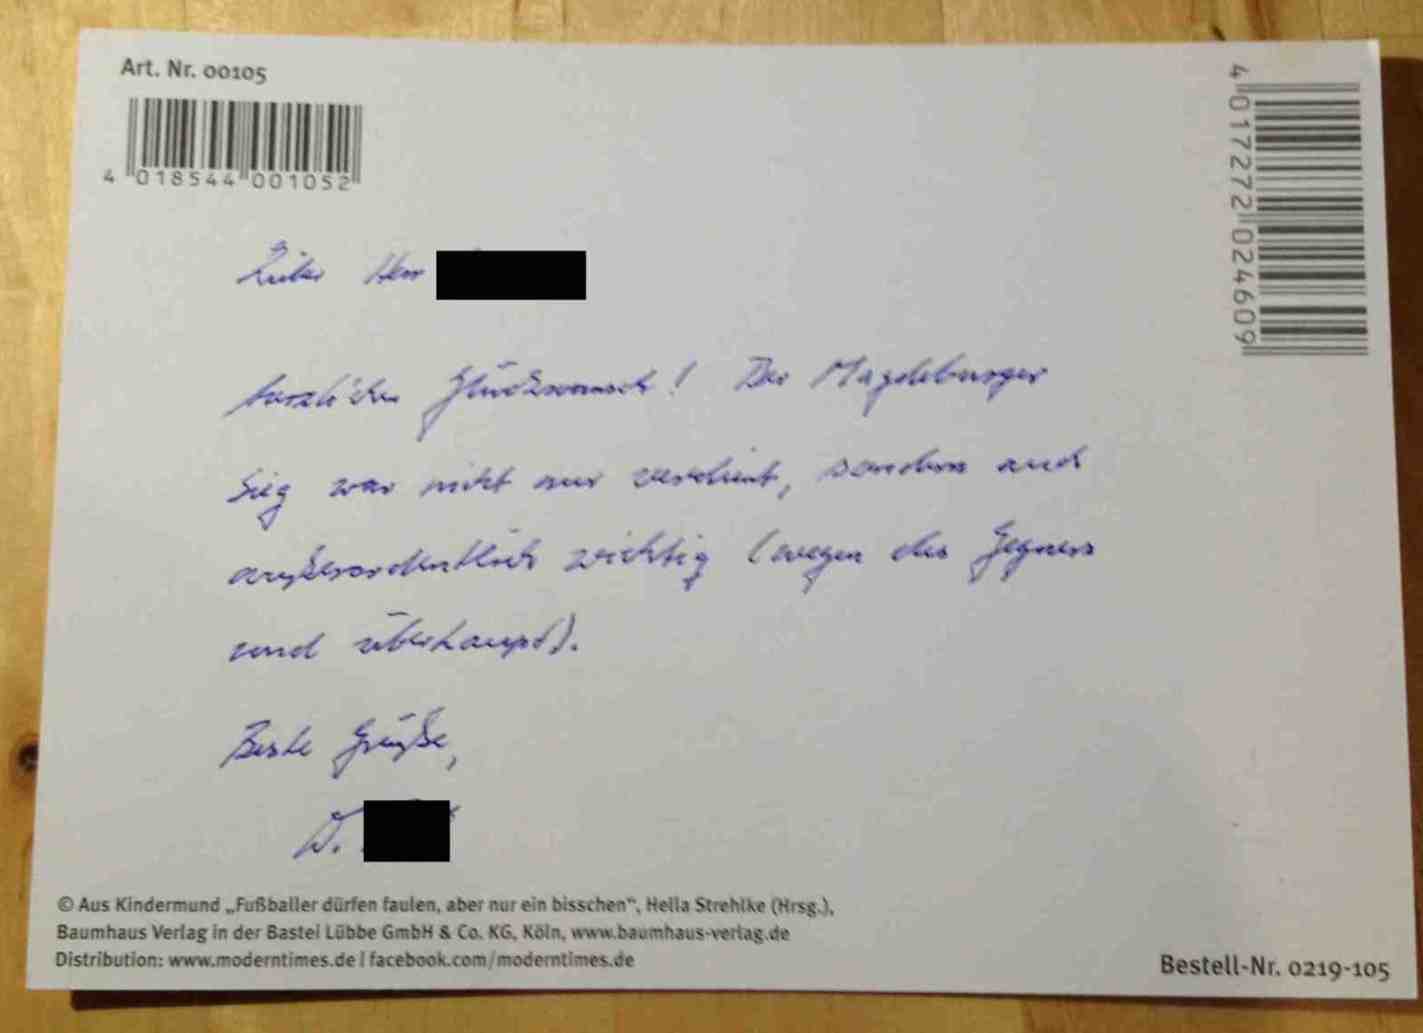 Art. Nr. 00105
4 018544 001052
4 017272 024609
Lieber Herr
herzlichen Glückwunsch! Der Magdeburger
Sieg war nicht nur verdient, sondern auch
außerordentlich wichtig (wegen des Gegners
und überhaupt).
Beste Grüße,
W.
© Aus Kindermund „Fußballer dürfen faulen, aber nur ein bisschen“, Hella Strehlke (Hrsg.),
Baumhaus Verlag in der Bastei Lübbe GmbH & Co. KG, Köln, www.baumhaus-verlag.de
Distribution: www.moderntimes.de | facebook.com/moderntimes.de
Bestell-Nr. 0219-105